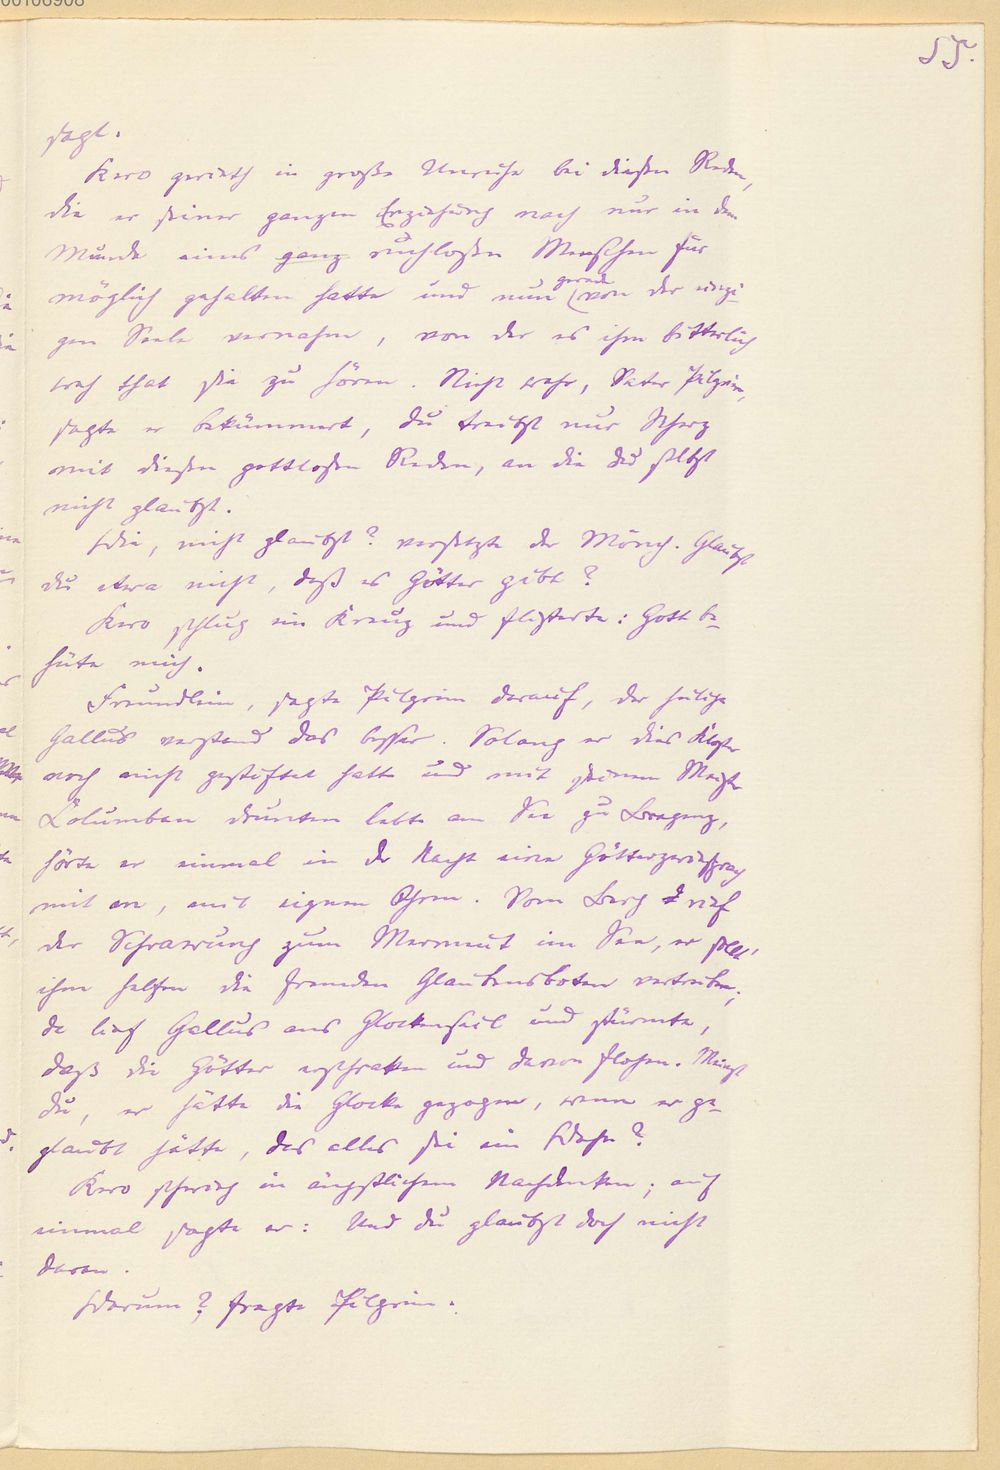 00106908
55.
sagt.
Kero gerieth in große Unruhe bei diesen Reden,
die er seiner ganzen Erziehung nach nur in dem
Munde eines ganz ruchlosen Menschen für
möglich gehalten hatte und nun gerade von der einzi-
gen Seele vernahm, von der es ihm bitterlich
weh that sie zu hören. Nicht wahr, Vater Pilgrim,
sagte er bekümmert, du treibst nur Scherz
mit diesen gottlosen Reden, an die du selbst
nicht glaubst.
Wie, nicht glaubst? versetzte der Mönch. Glaubst
du etwa nicht, daß es Götter gibt?
Kero schlug ein Kreuz und flisterte: Gott be-
hüte mich.
Freundlein, sagte Pilgrim darauf, der heilige
Gallus verstand das besser. Solang er dies Kloster
noch nicht gestiftet hatte und mit seinem Meister
Columban drunten lebte am See zu Bregenz,
hörte er einmal in der Nacht eine Götterzwiesprach
mit an, mit eignen Ohren. Vom Berg rief
der Schrawung zum Mermeut im See, er sollt'
ihm helfen die fremden Glaubensboten vertreiben;
da lief Gallus ans Glockenseil und stürmte,
daß die Götter erschraken und davon flohen. Meinst
du, er hätte die Glocke gezogen, wenn er ge-
glaubt hätte, das alles sei ein Wahn?
Kero schwieg in ängstlichem Nachdenken; auf
einmal sagte er: Und du glaubst doch nicht
daran.
Warum? fragte Pilgrim.